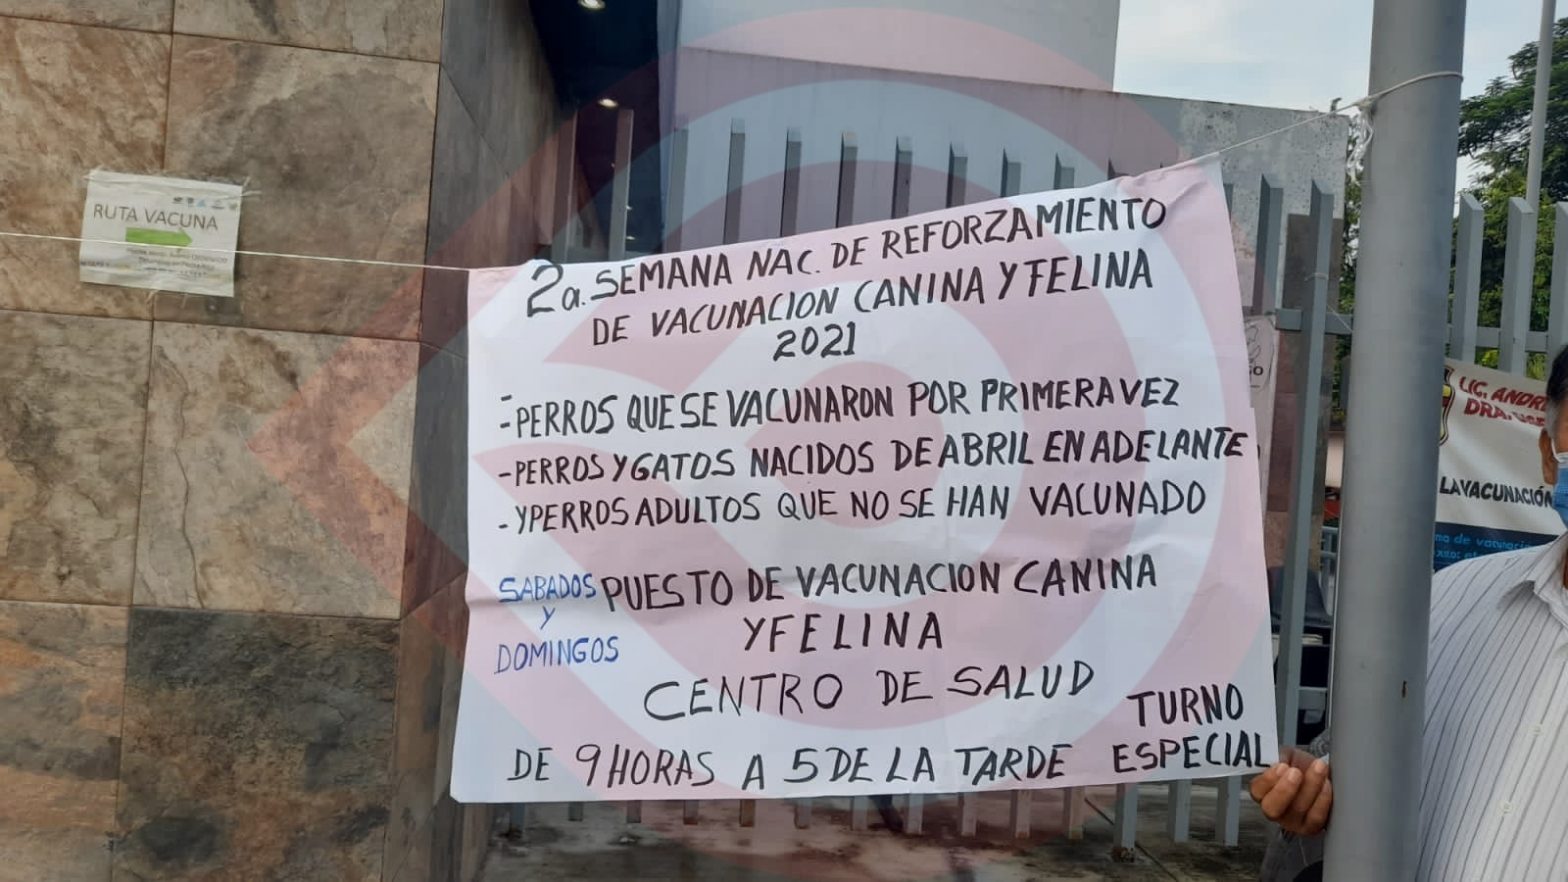 RUTA VACUNA
2a. SEMANA NAC. DE REFORZAMIENTO
DE VACUNACION CANINA Y FELINA
2021
- PERROS QUE SE VACUNARON POR PRIMERA VEZ
- PERROS Y GATOS NACIDOS DE ABRIL EN ADELANTE
- Y PERROS ADULTOS QUE NO SE HAN VACUNADO
SABADOS
Y
DOMINGOS
PUESTO DE VACUNACION CANINA
Y FELINA
CENTRO DE SALUD
TURNO
ESPECIAL
DE 9 HORAS A 5 DE LA TARDE
LIC. ANDR
LA VACUNACIÓN